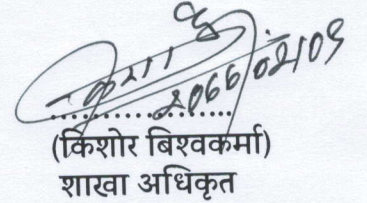 2066/02/09
(किशोर बिश्वकर्मा)
शाखा अधिकृत